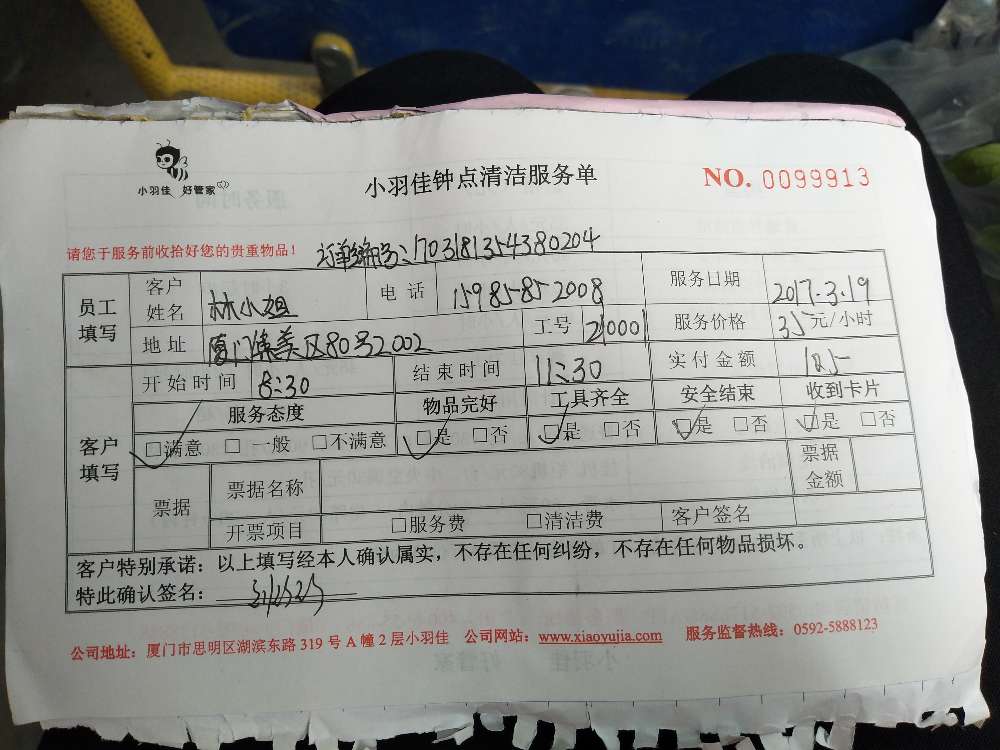 小羽佳 好管家
小羽佳钟点清洁服务单
NO. 0099913
请您于服务前收拾好您的贵重物品!
订单编号:1703181354380204
员工填写 客户姓名 林小姐 电话 15985852008 服务日期 2017.3.19
地址 厦门集美区80号2002 工号 21000 服务价格 35元/小时
客户填写 开始时间 8:30 结束时间 11:30 实付金额 105
服务态度 物品完好 工具齐全 安全结束 收到卡片
□满意 □一般 □不满意 □是 □否 □是 □否 □是 □否 □是 □否
票据 票据名称 票据金额
开票项目 □服务费 □清洁费 客户签名
客户特别承诺:以上填写经本人确认属实,不存在任何纠纷,不存在任何物品损坏。
特此确认签名:
公司地址:厦门市思明区湖滨东路 319 号 A 幢 2 层小羽佳 公司网站:www.xiaoyujia.com 服务监督热线:0592-5888123